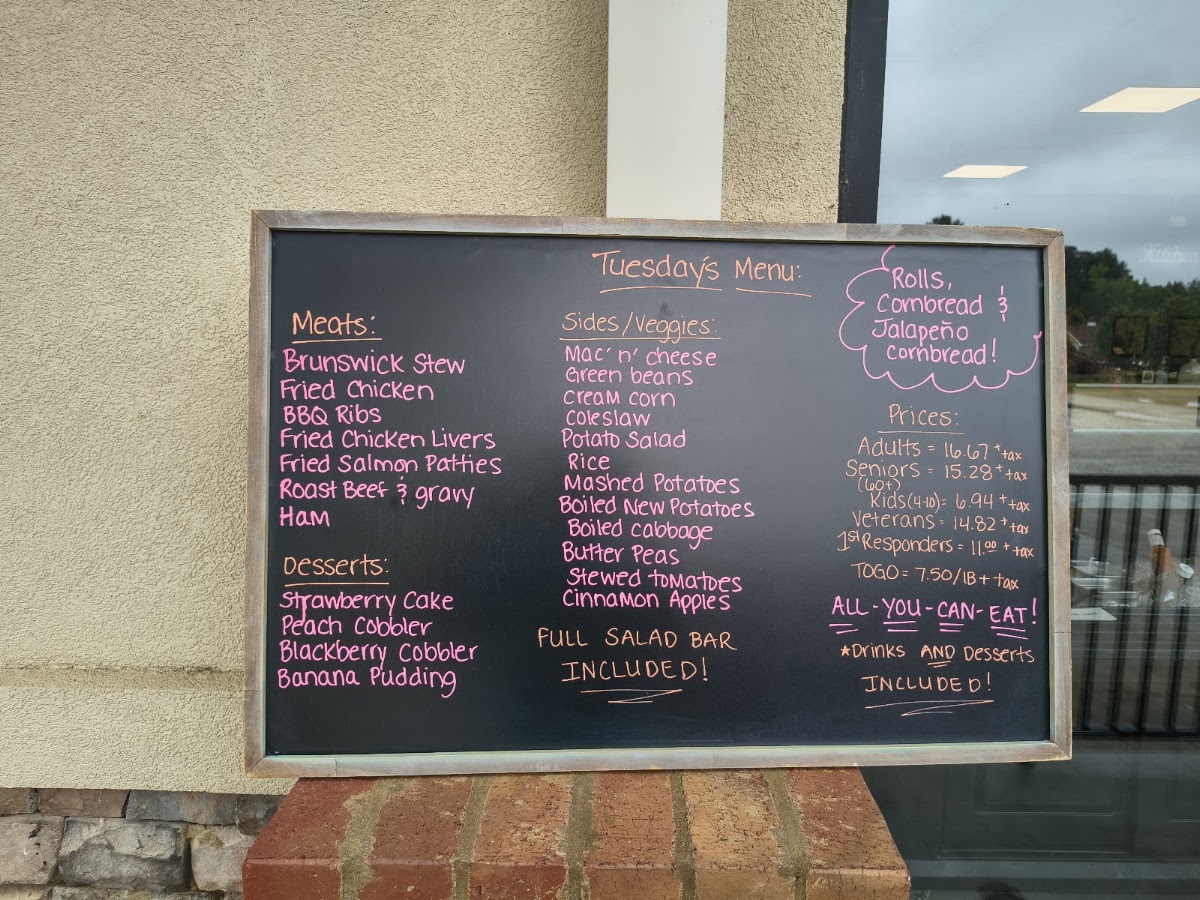 Tuesday's Menu:
Meats:
Brunswick Stew
Fried Chicken
BBQ Ribs
Fried Chicken Livers
Fried Salmon Patties
Roast Beef & gravy
Ham
Desserts:
Strawberry Cake
Peach Cobbler
Blackberry Cobbler
Banana Pudding
Sides/Veggies:
Mac' n' cheese
Green beans
cream corn
coleslaw
Potato Salad
Rice
Mashed Potatoes
Boiled New Potatoes
Boiled cabbage
Butter Peas
Stewed tomatoes
Cinnamon Apples
FULL SALAD BAR
INCLUDED!
Rolls,
Cornbread &
Jalapeño
cornbread!
Prices:
Adults = 16.67 + tax
Seniors = 15.28 + tax
(60+)
Kids (4-10) = 6.94 + tax
Veterans = 14.82 + tax
1st Responders = 11.00 + tax
TOGO = 7.50/lB + tax
ALL-YOU-CAN-EAT!
*Drinks AND Desserts
INCLUDED!
Kitchen